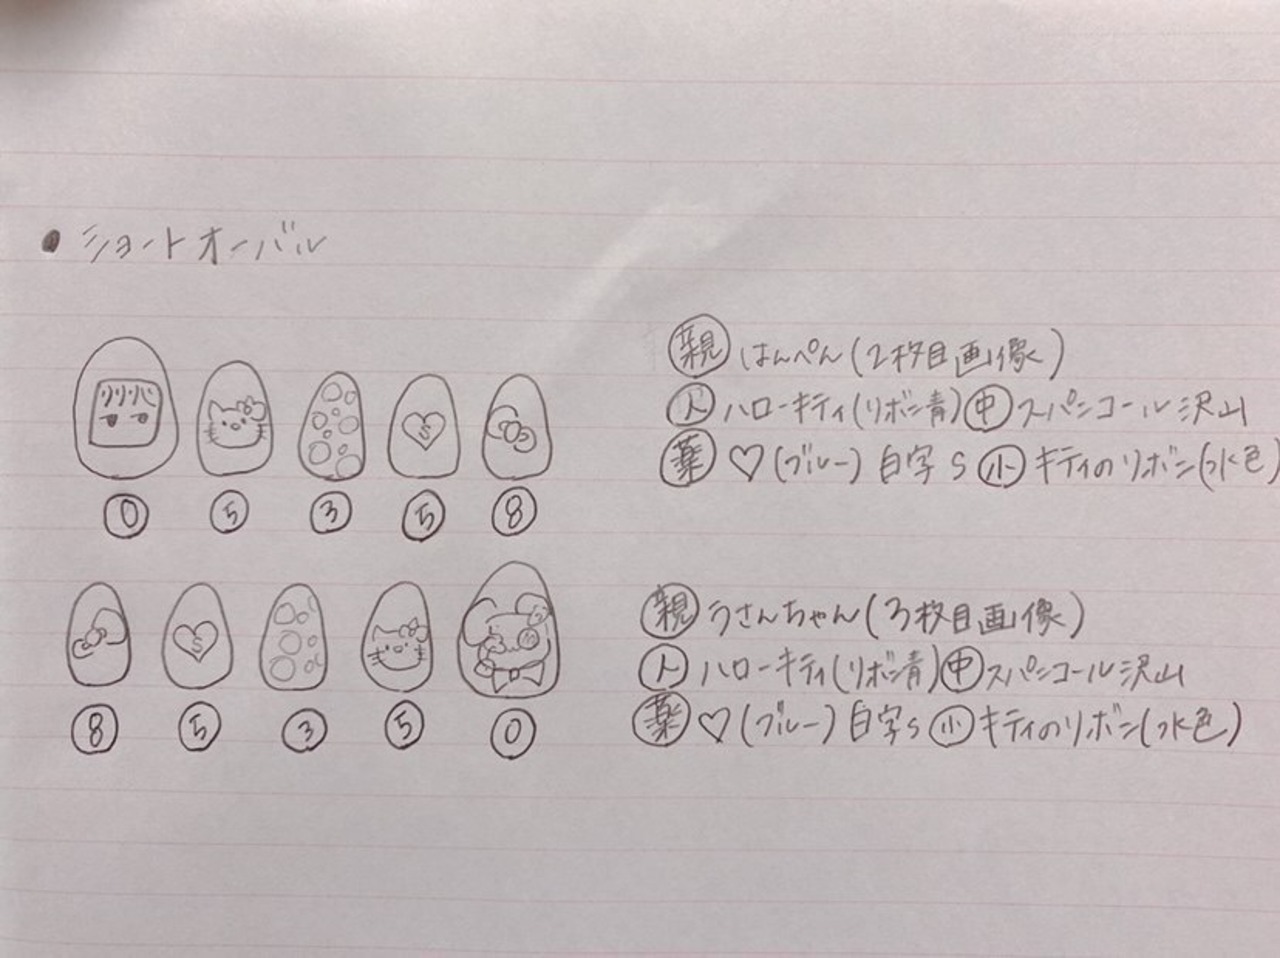 ● ショートオーバル
親 はんぺん(2枚目画像)
人 ハローキティ(リボン青) 中 スパンコール沢山
薬 ♡(ブルー) 白字 S 小 キティのリボン(水色)
S
0 5 3 5 8
親 うさんちゃん(3枚目画像)
人 ハローキティ(リボン青) 中 スパンコール沢山
薬 ♡(ブルー) 白字 S 小 キティのリボン(水色)
S
8 5 3 5 0